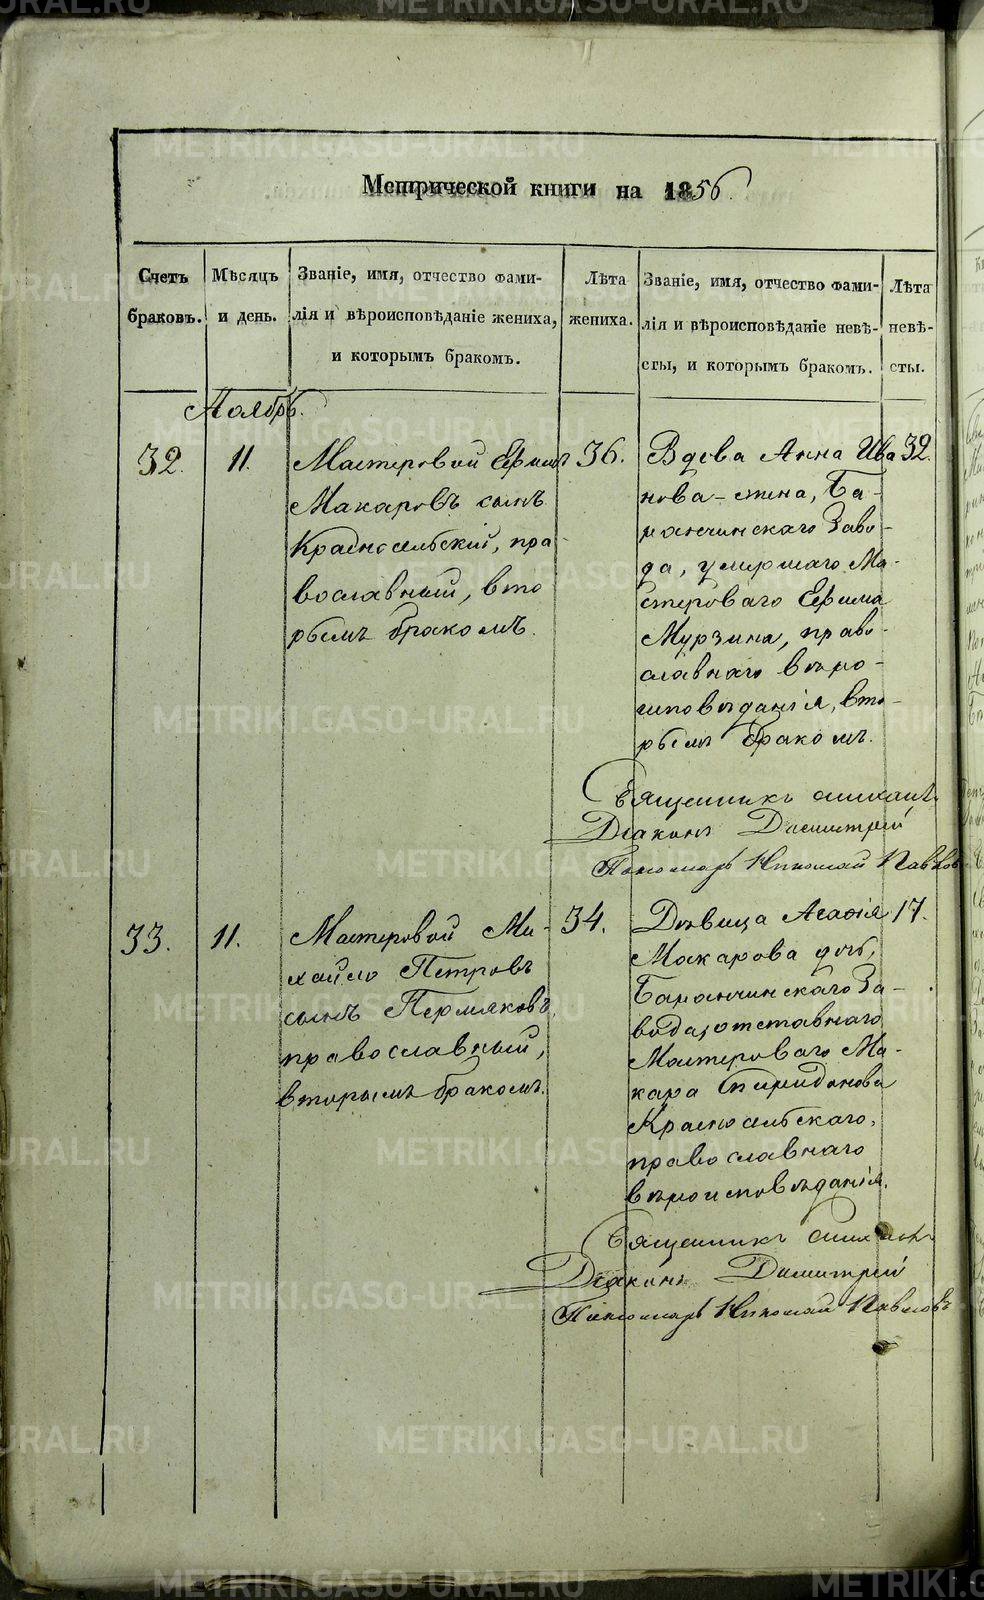 Метрической книги на 1856.
Счетъ браковъ.
Мѣсяцъ и день.
Званіе, имя, отчество фами-
лія и вѣроисповѣданіе жениха,
и которымъ бракомъ.
Лѣта жениха.
Званіе, имя, отчество фами-
лія и вѣроисповѣданіе невѣ-
сты, и которымъ бракомъ.
Лѣта невѣ-
сты.
Ноябрь.
32.
11.
Мастеровой Ефимъ
Макаровъ сынъ
Красносельский, пра-
вославный, вто
рымъ бракомъ.
36.
Вдова Анна Ива
нова
Ба-
ранчинскаго Заво-
да, умершаго Ма-
стероваго Ефима
Мурзина, право-
славнаго вѣро-
исповѣданія, вто-
рымъ бракомъ.
32.
Священникъ
Діаконъ Димитрій
Пономарь Николай Павловъ
33.
11.
Мастеровой Ми-
хайло Петровъ
сынъ Пермяковъ,
православный,
вторымъ бракомъ.
34.
Дѣвица Агафія
Макарова дочь,
Баранчинскаго За-
вода, отставнаго
Мастероваго Ма-
кара Спиридонова
Красносельскаго,
православнаго
вѣроисповѣданія.
17.
Священникъ
Діаконъ Димитрій
Пономарь Николай Павловъ
METRIKI.GASO-URAL.RU